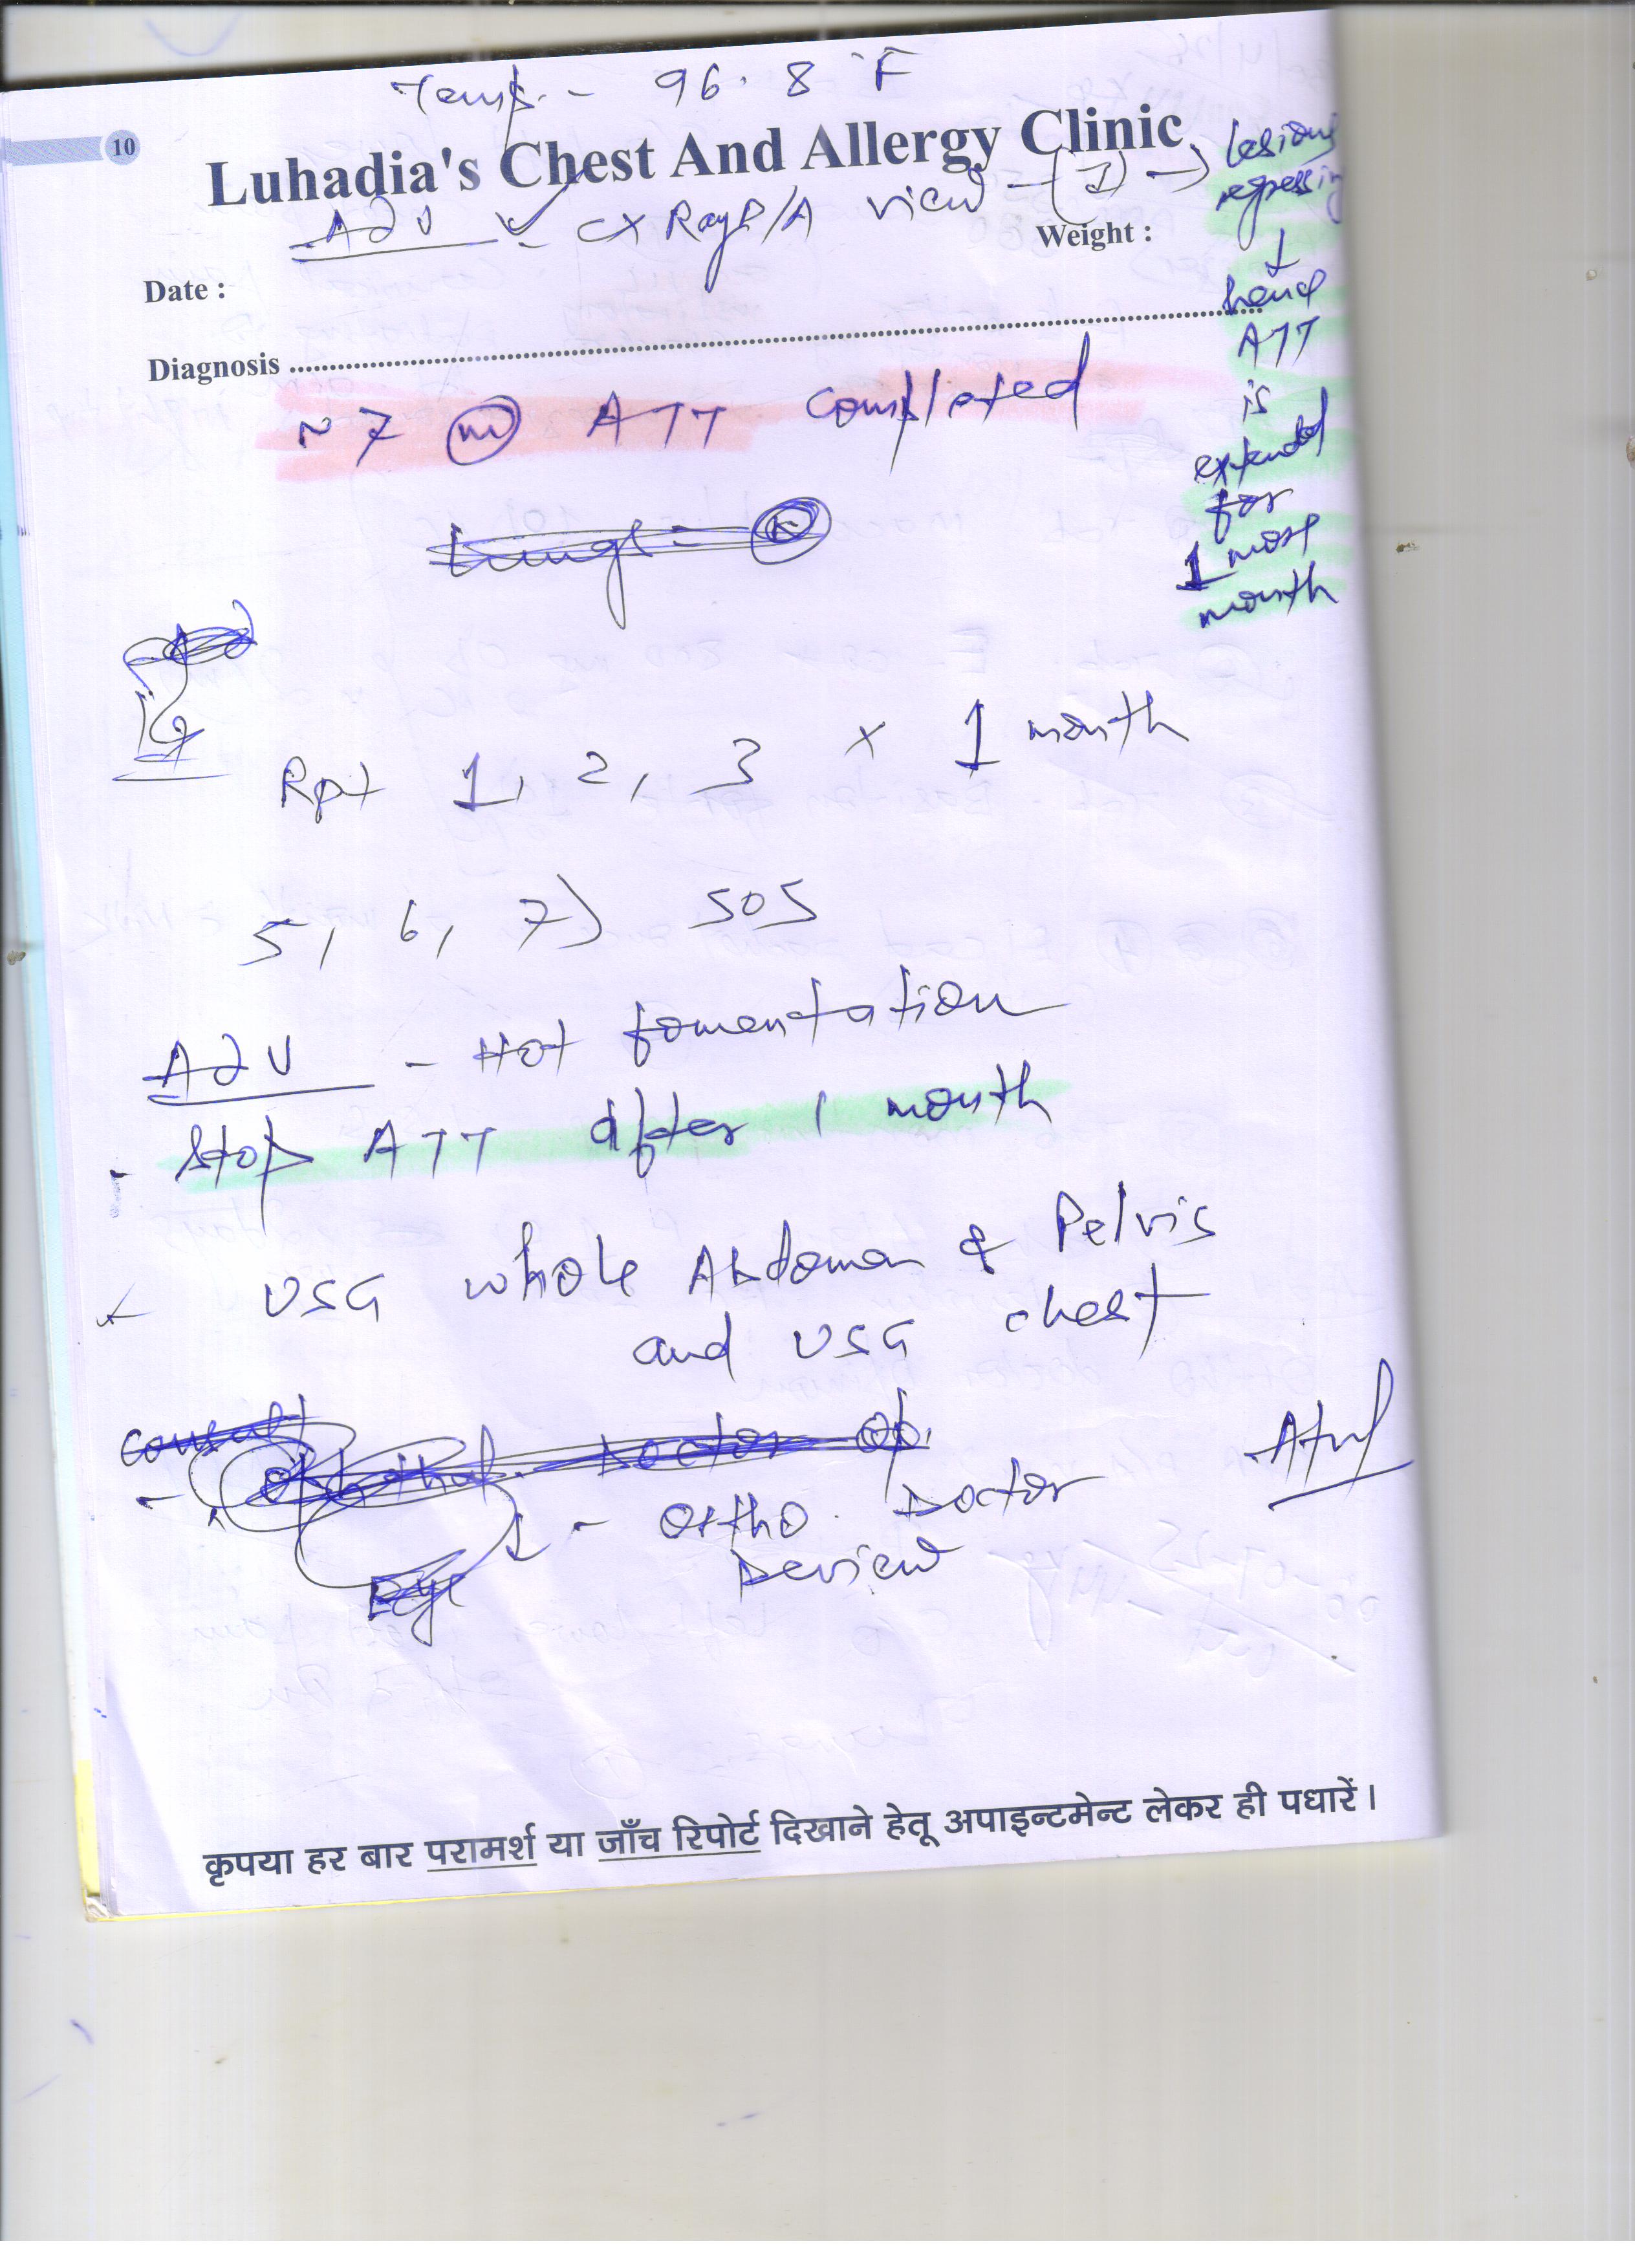 Temp. - 96.8 °F
10
Luhadia's Chest And Allergy Clinic
Adv - CX Ray P/A view - (1) → Lesions
regressing
↓
hence
ATT
is
extended
for
1 more
month
Weight :
Date :
Diagnosis
~ 7 (m) ATT completed
Rpt 1, 2, 3 x 1 month
5, 6, 7) SOS
Adv - Hot fomentation
- Stop ATT after 1 month
USG whole Abdomen & Pelvis
and USG chest
consult
Doctor
- Ortho. Doctor
Review
Eye
कृपया हर बार परामर्श या जाँच रिपोर्ट दिखाने हेतू अपाइन्टमेन्ट लेकर ही पधारें।